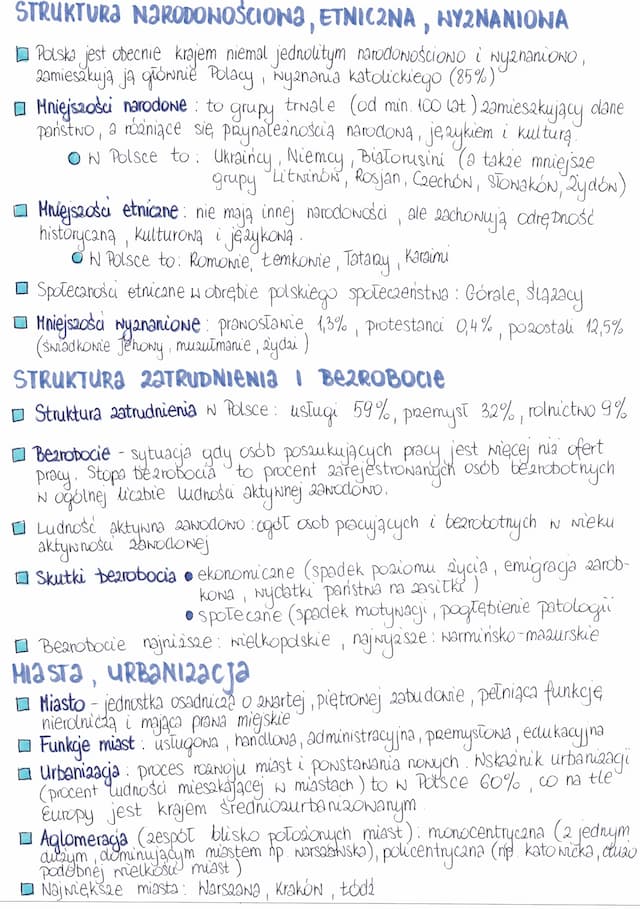 STRUKTURA NARODOWOŚCIOWA, ETNICZNA, WYZNANIOWA
Polska jest obecnie krajem niemal jednolitym narodowościowo i wyznaniowo,
zamieszkują ją głównie Polacy, wyznania katolickiego (85%)
Mniejszości narodowe: to grupy trwale (od min. 100 lat) zamieszkujący dane
państwo, a różniące się przynależnością narodową, językiem i kulturą.
W Polsce to: Ukraińcy, Niemcy, Białorusini (a także mniejsze
grupy Litwinów, Rosjan, Czechów, Słowaków, Żydów)
Mniejszości etniczne: nie mają innej narodowości, ale zachowują odrębność
historyczną, kulturową i językową.
W Polsce to: Romowie, Łemkowie, Tatarzy, Karaimi
Społeczności etniczne w obrębie polskiego społeczeństwa: Górale, Ślązacy
Mniejszości wyznaniowe: prawosławie 1,3%, protestanci 0,4%, pozostali 12,5%
(świadkowie Jehowy, muzułmanie, żydzi)
STRUKTURA ZATRUDNIENIA I BEZROBOCIE
Struktura zatrudnienia w Polsce: usługi 59%, przemysł 32%, rolnictwo 9%
Bezrobocie - sytuacja gdy osób poszukujących pracy jest więcej niż ofert
pracy. Stopa bezrobocia to procent zarejestrowanych osób bezrobotnych
w ogólnej liczbie ludności aktywnej zawodowo.
Ludność aktywna zawodowo: ogół osób pracujących i bezrobotnych w wieku
aktywności zawodowej
Skutki bezrobocia • ekonomiczne (spadek poziomu życia, emigracja zarob-
kowa, wydatki państwa na zasiłki)
• społeczne (spadek motywacji, pogłębienie patologii
Bezrobocie najniższe: wielkopolskie, najwyższe: warmińsko-mazurskie
MIASTA, URBANIZACJA
Miasto - jednostka osadnicza o zwartej, piętrowej zabudowie, pełniąca funkcję
nierolniczą i mająca prawa miejskie
Funkcje miast: usługowa, handlowa, administracyjna, przemysłowa, edukacyjna
Urbanizacja: proces rozwoju miast i powstawania nowych. Wskaźnik urbanizacji
(procent ludności mieszkającej w miastach) to w Polsce 60%, co na tle
Europy jest krajem średniozurbanizowanym
Aglomeracja (zespół blisko położonych miast): monocentryczna (z jednym
dużym, dominującym miastem np. warszawska), policentryczna (np. katowicka, dużo
podobnej wielkości miast)
Największe miasta: Warszawa, Kraków, Łódź